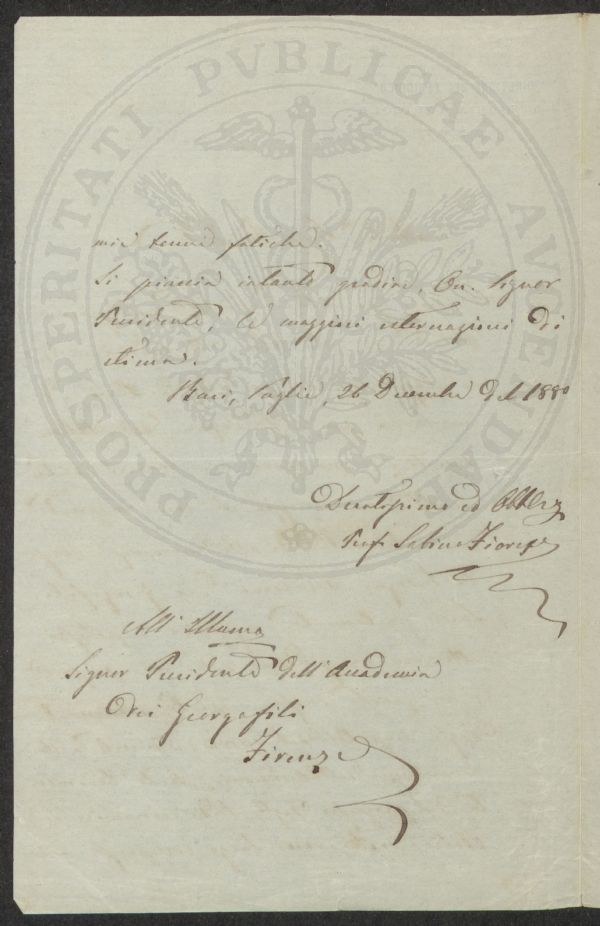 PROSPERITATI PVBLICAE AVGENDAE
mie tenui fatiche.
Si piaccia intanto gradire, On. Signor
Presidente, le maggiori esternazioni di
stima.
Bari, Puglie, 26 Decembre del 1880
Devotissimo ed Obbl
Prof. Sabino Fiorese
All' Illmo
Signor Presidente dell'Accademia
Dei Georgofili
Firenze